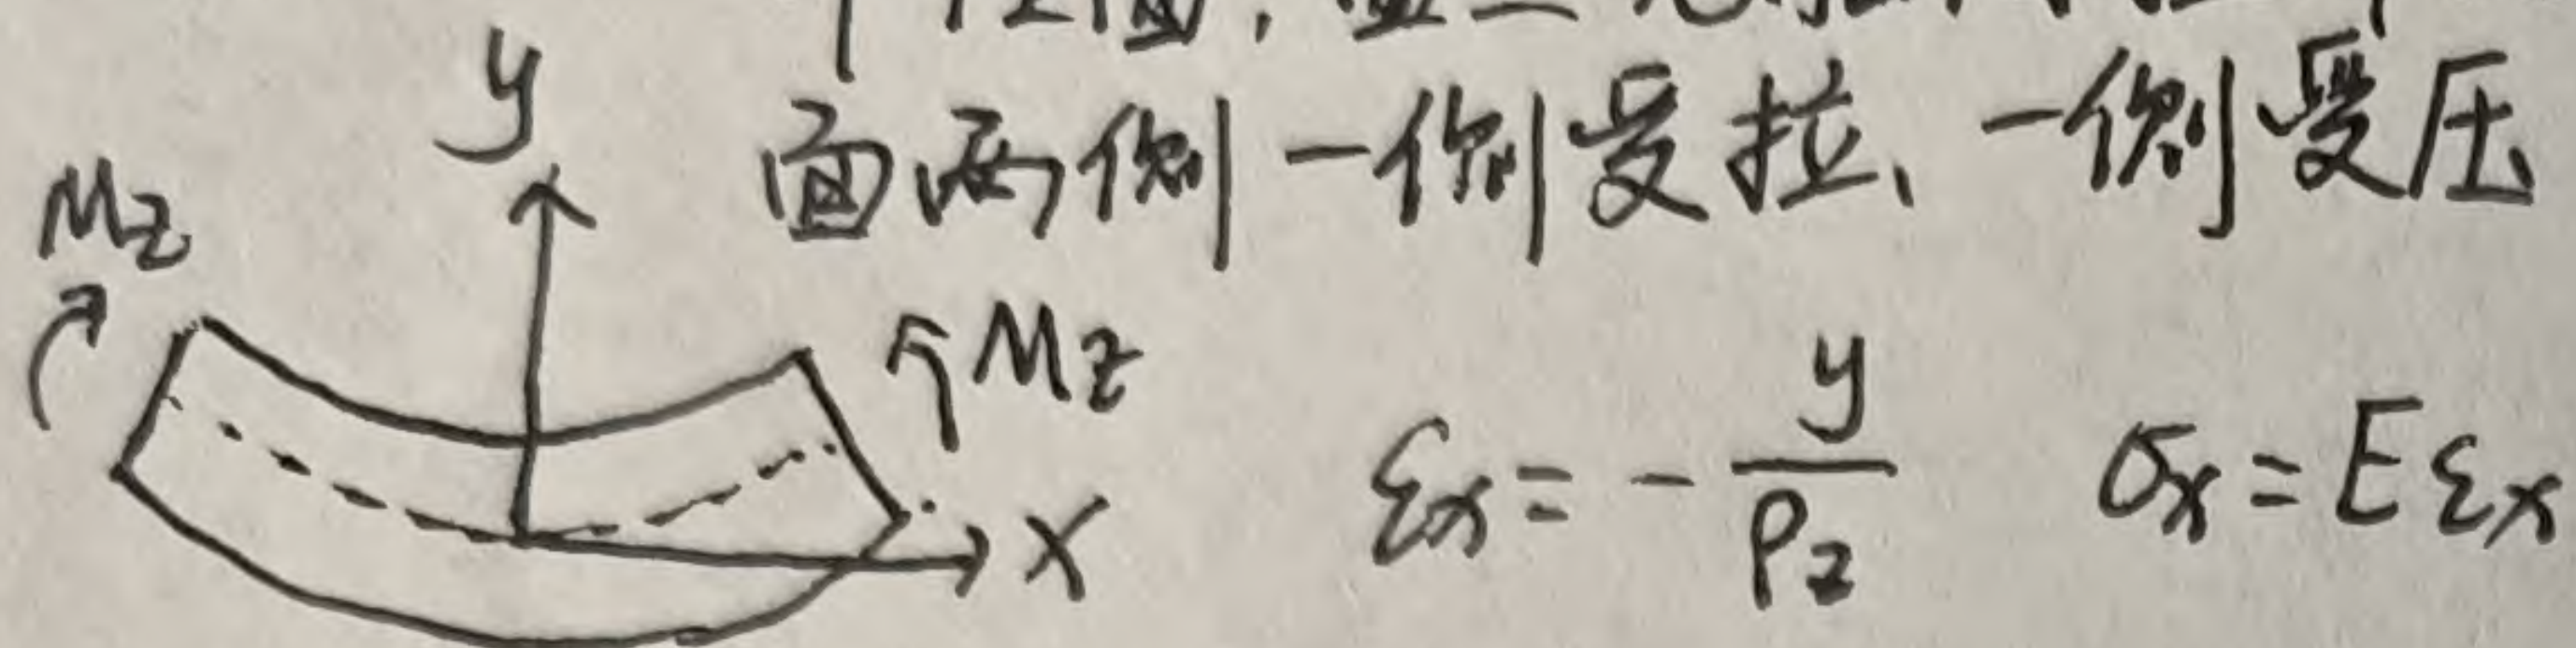 面两侧一侧受拉、一侧受压
y
Mz
Mz
εx = - y/ρz  σx = Eεx
x